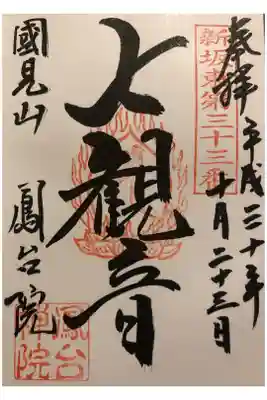 奉拝
平成三十年
十月二十三日
新坂東第三十三番
大観音
國見山 鳳台院
鳳台
禅院